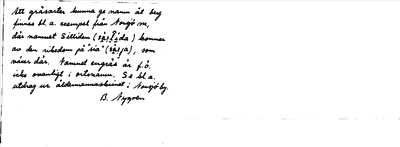 Att gräsarter kunna ge namn åt berg
finns bl. a. exempel från Norsjö sn,
där namnet Silliden ( kommer
av den rikedom på "sia" ( som
växer där. Namnet engräs är f.ö.
icke ovanligt i ortnamn. Se bl a.
utdrag ur åldermannaskrinet i Norsjö by.
B. Nygren